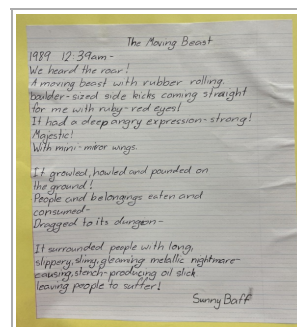 The Moving Beast
1989 12:39am-
We heard the roar!
A moving beast with rubber rolling.
boulder-sized side kicks coming straight
for me with ruby-red eyes!
It had a deep angry expression-strong!
Majestic!
With mini-mirror wings.
It growled, howled and pounded on
the ground!
People and belongings eaten and
consumed-
Dragged to its dungeon-
It surrounded people with long,
slippery, slimy, gleaming metallic nightmare-
causing, stench-producing oil slick
leaving people to suffer!
Sunny Baff